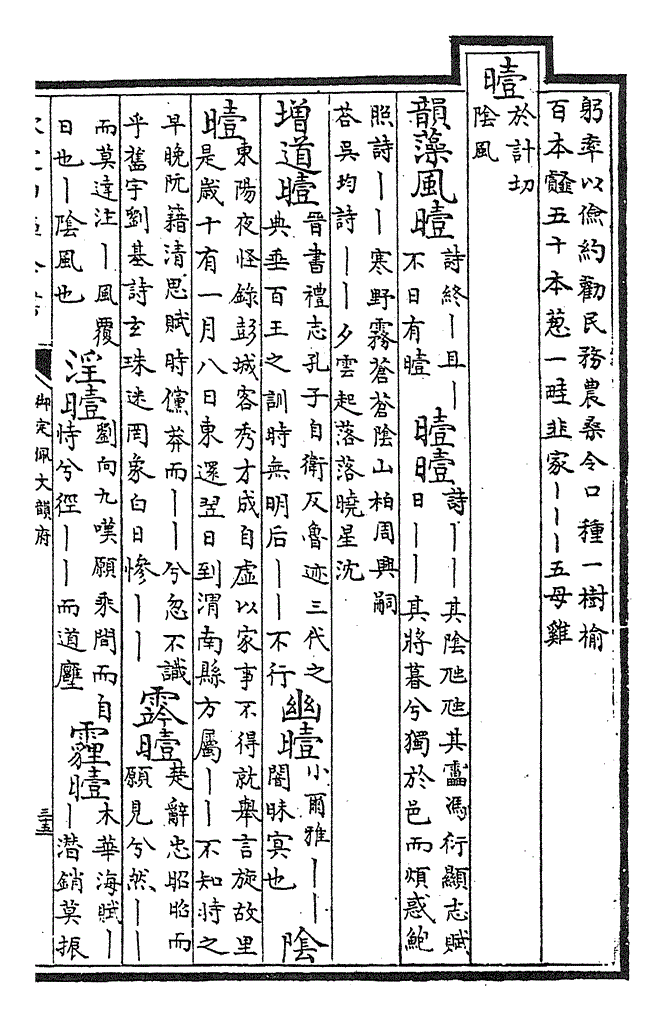 躬率以儉約勸民務農桑令口種一樹榆
百本䪥五十本葱一畦韭家丨丨丨五母雞
曀
於計切
陰風
韻藻風曀
詩終丨且丨
不日有曀
曀曀
詩丨丨其陰虺虺其靁馮衍顯志賦
日丨丨其將暮兮獨於邑而煩惑鮑
照詩丨丨寒野霧蒼蒼陰山柏周興嗣
荅吳均詩丨丨夕雲起落落曉星沈
增道曀
晉書禮志孔子自衛反魯迹三代之
典垂百王之訓時無明后丨丨不行
幽曀
小爾雅丨丨
闇昧冥也
陰
曀
東陽夜怪錄彭城客秀才成自虛以家事不得就舉言旋故里
是歲十有一月八日東還翌日到渭南縣方屬丨丨不知時之
早晚阮籍清思賦時儻莽而丨丨兮忽不識
乎舊宇劉基詩玄珠迷罔象白日慘丨丨
霒曀
楚辭忠昭昭而
願見兮然丨丨
而莫達注丨風覆
日也丨陰風也
淫曀
劉向九嘆願乘間而自
恃兮徑丨丨而道壅
霾曀
木華海賦丨
丨潛銷莫振
御定佩文韻府
三五